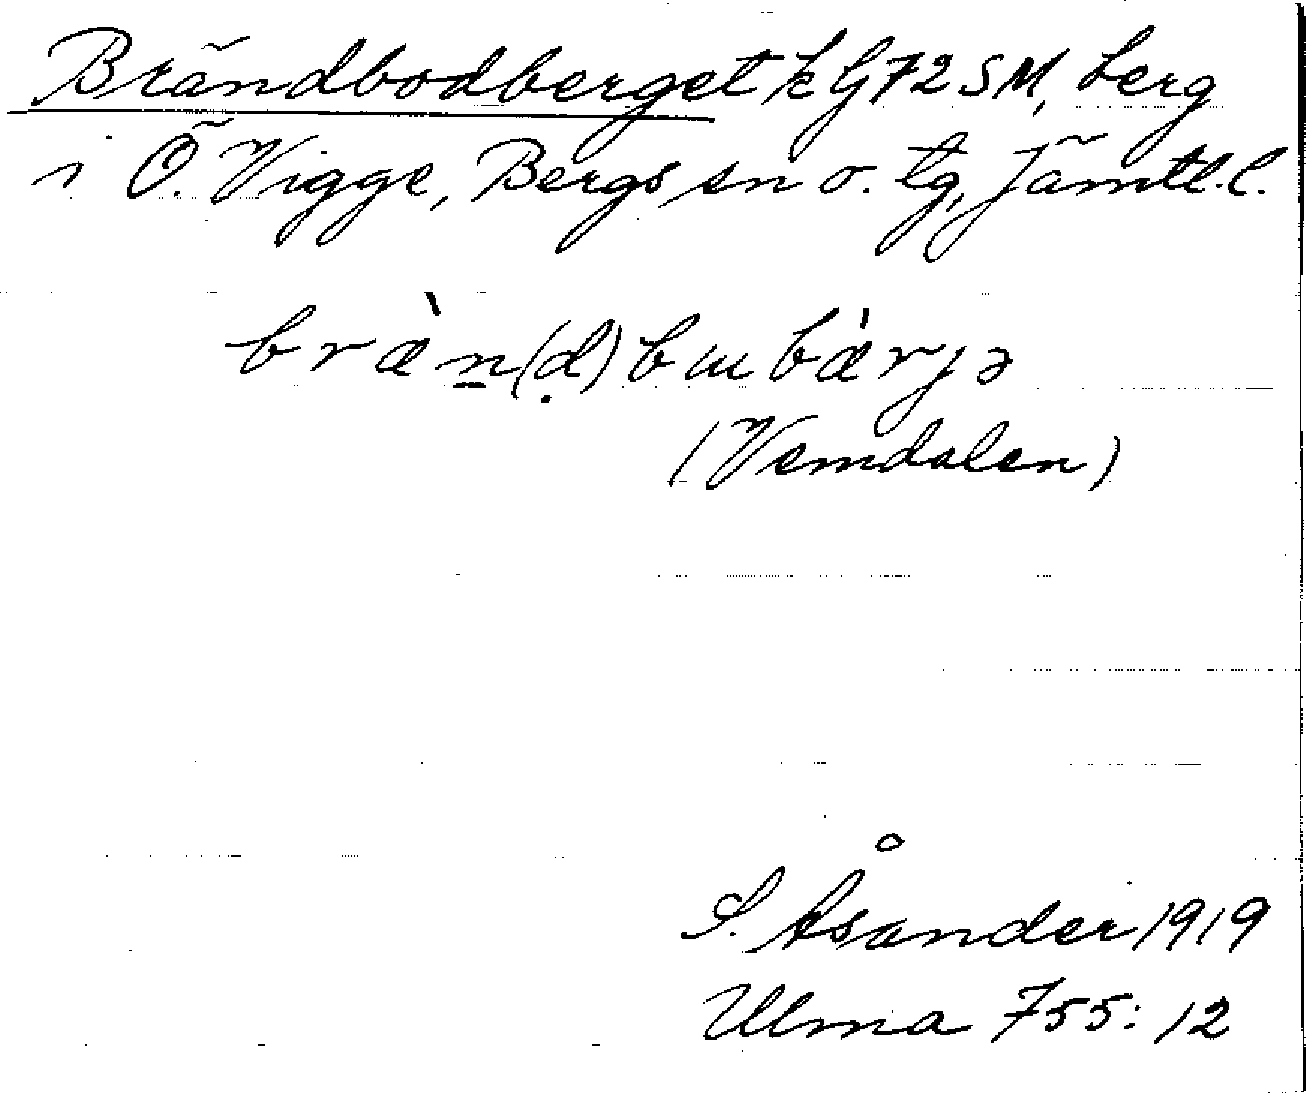 Brändbodberget k G 72 SM, berg
i Ö. Vigge, Bergs sn o. tg, Jämtl. l.
bræ̀n(d)bɯbæ̀rjə
(Vemdalen)
S. Åsander 1919
Ulma 755: 12